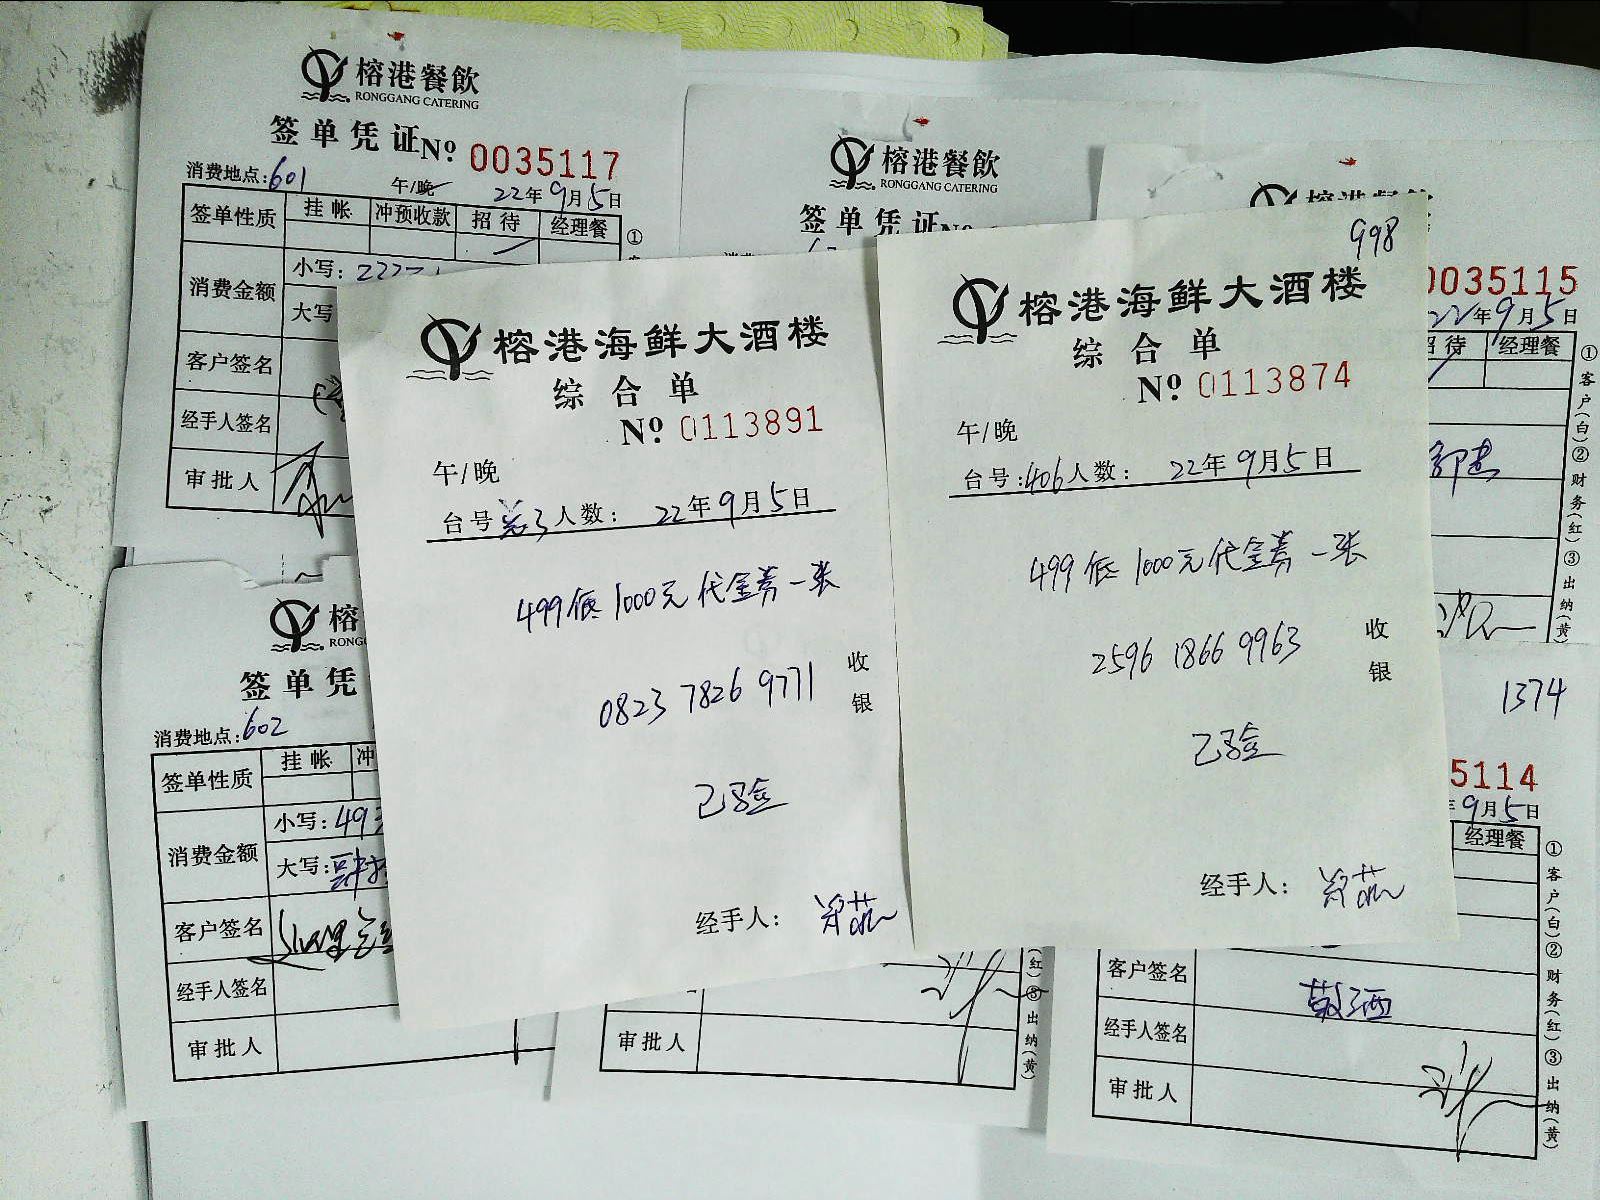 榕港餐飲
RONGGANG CATERING
签单凭证 No. 0035117
消费地点:601 午/晚 22年9月5日
签单性质 挂帐 冲预收款 招待 经理餐
消费金额 小写:
大写
客户签名
经手人签名
审批人
①
榕港餐飲
RONGGANG CATERING
签单凭证 No.
榕港餐飲
0035115
22年9月5日
招待 经理餐
①客户(白)②财务(红)③出纳(黄)
榕港海鲜大酒楼
综合单
No. 0113891
午/晚
台号 人数: 22年9月5日
499低1000元代金券一张
0823 7826 9771
收银
已验
经手人:
998
榕港海鲜大酒楼
综合单
No. 0113874
午/晚
台号:406 人数: 22年9月5日
499低1000元代金券一张
2596 1866 9963
收银
已验
经手人:
榕
RONG
签单凭
消费地点:602
签单性质 挂帐 冲
消费金额 小写:493
大写:
客户签名
经手人签名
审批人
审批人
(红)③出纳(黄)
1374
5114
9月5日
经理餐
客户签名 敬酒
经手人签名
审批人
①客户(白)②财务(红)③出纳(黄)